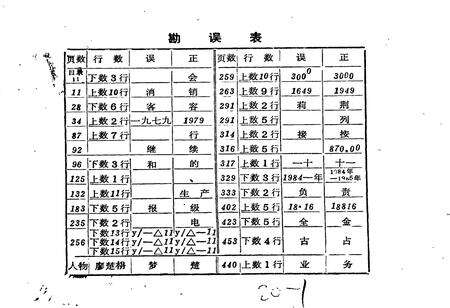 勘误表
页数 行数 误 正 页数 行数 误 正
目录11 下数3行 会 259 上数10行 300⁰ 3000
11 上数10行 消 销 263 上数9行 1649 1949
28 下数6行 客 客 291 上数2行 莉 荆
34 上数2行 一九七九 1979 291 上数5行 列
87 上数7行 行 314 上数2行 接 接
92 继 续 316 上数5行 870.00
96 下数3行 和 的 317 上数1行 一十 十一
125 上数1行 、 329 下数3行 1984—年 1984年—1985年
132 上数11行 生产 333 下数2行 负 责
183 下数5行 报 级 402 上数5行 18·16 18816
235 下数2行 电 423 下数5行 全 金
256 下数13行 y/一△11 y/△一11 453 下数4行 古 占
下数14行 y/一△11 y/△一11
下数15行 y/一△11 y/△一11
人物 廖楚栩 梦 楚 440 上数1行 业 务
20-1